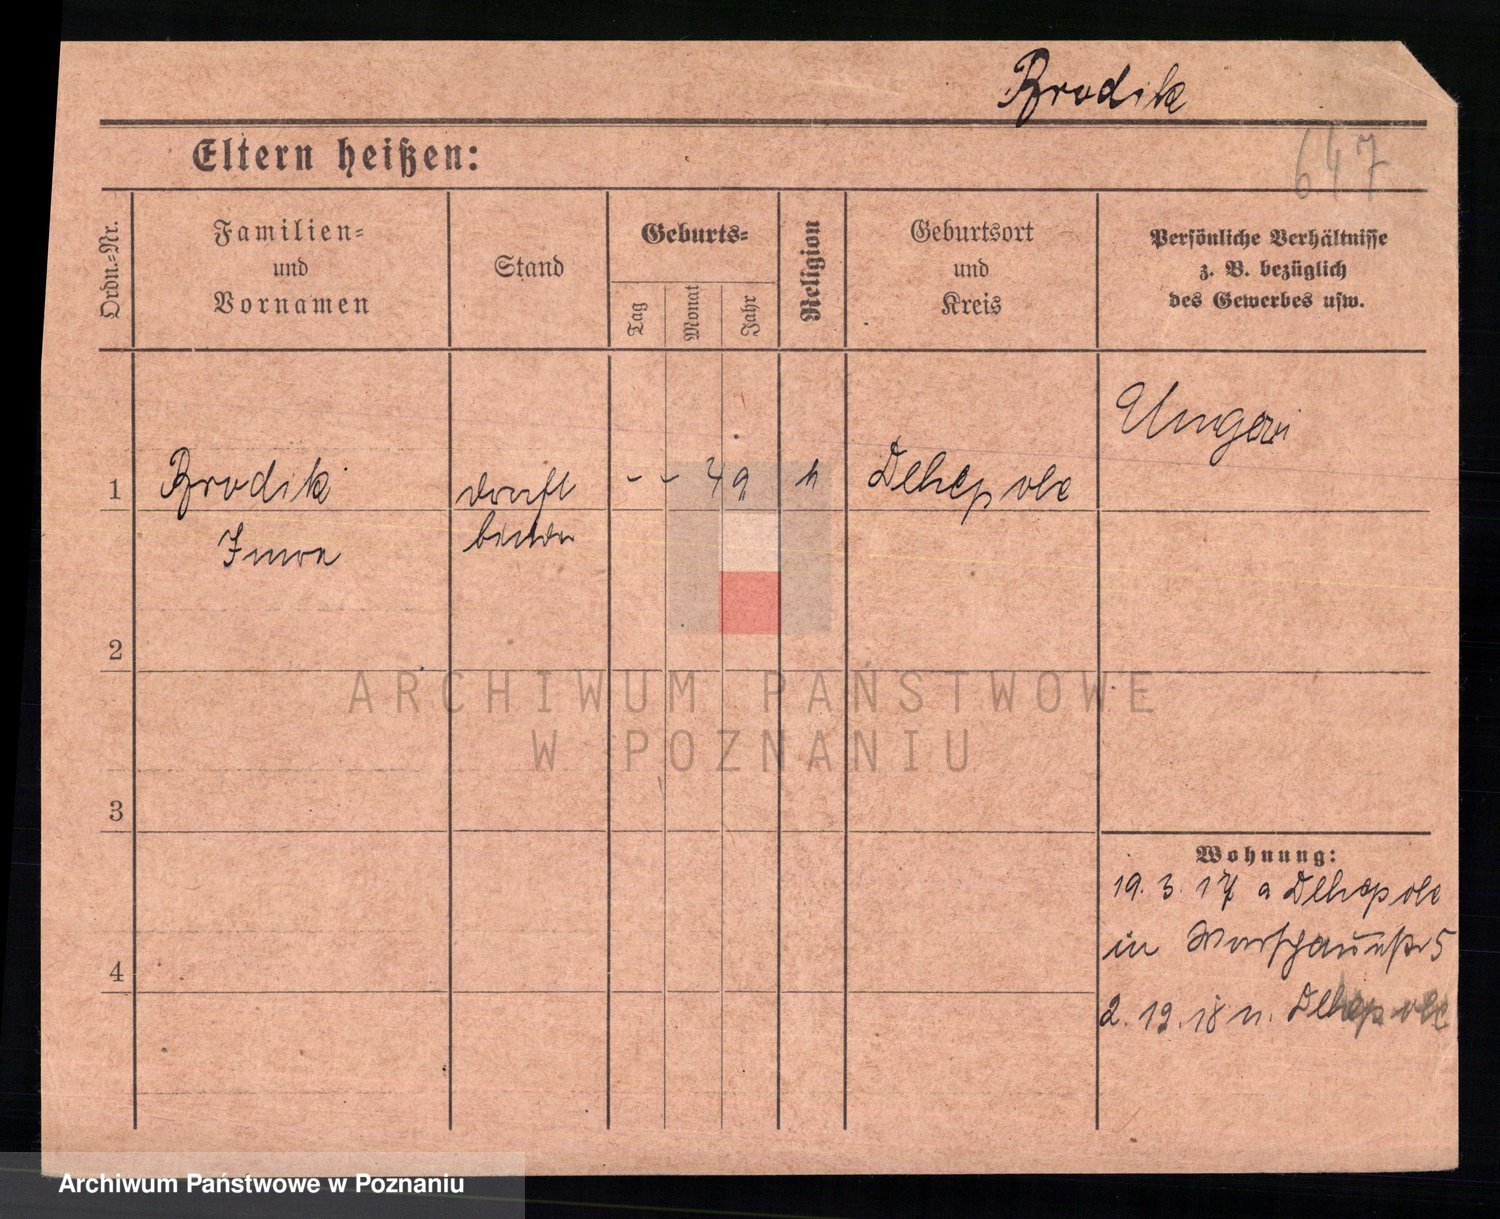 Brodik
Eltern heißen:
647
Ordn.-Nr.
Familien-
und
Vornamen
Stand
Geburts-
Tag
Monat
Jahr
Religion
Geburtsort
und
Kreis
Persönliche Verhältnisse
z. B. bezüglich
des Gewerbes usw.
Ungarn
1
Brodik
- - 49
Dlhepole
binder
2
ARCHIWUM PAŃSTWOWE
W POZNANIU
3
Wohnung:
19. 3. 17 a Dlhepole
in Warschauerstr 5
4
2. 12. 18 n. Dlhepole
Archiwum Państwowe w Poznaniu